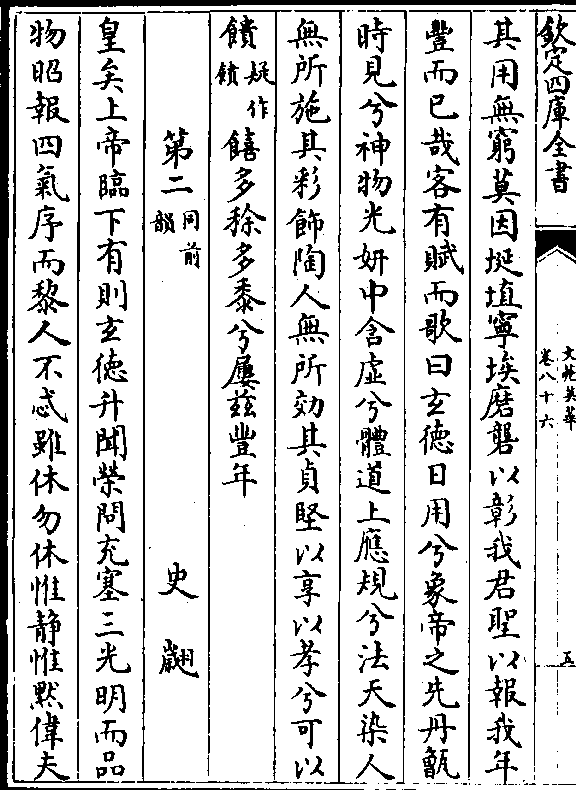 欽定四庫全書
文苑英華
卷八十六
五
其用無窮莫因埏埴寧埃磨礱以彰我君聖以報我年
豐而已哉客有賦而歌曰玄德日用兮象帝之先丹甑
時見兮神物光妍中含虛兮體道上應規兮法天染人
無所施其彩飾陶人無所効其貞堅以享以孝兮可以
饋疑作饙饎多稌多黍兮屢茲豐年
第二同前韻　史翽
皇矣上帝臨下有則玄德升聞榮問充塞三光明而品
物昭報四氣序而黎人不忒雖休勿休惟靜惟黙偉夫